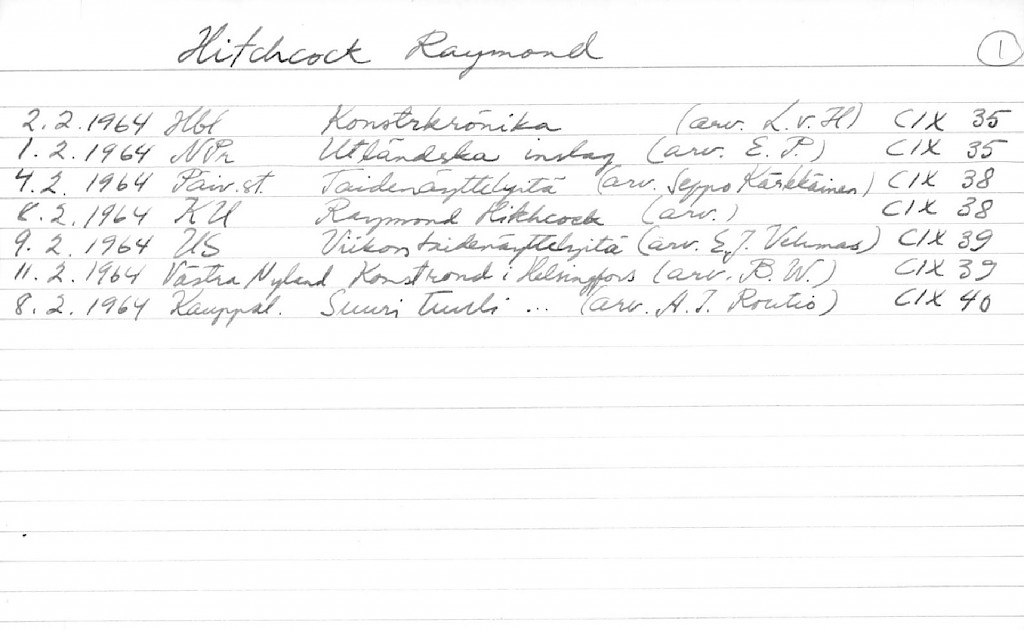 Hitchcock Raymond 1
2.2.1964 Hbl Konstkrönika (arv. L.v.H) CIX 35
1.2.1964 NPr Utländska inslag (arv. E.P.) CIX 35
4.2.1964 Päiv.st. Taidenäyttelyitä (arv. Seppo Kärkkäinen) CIX 38
8.2.1964 KU Raymond Hitchcock (arv.) CIX 38
9.2.1964 US Viikon taidenäyttelyitä (arv. E.J. Vehmas) CIX 39
11.2.1964 Västra Nyland Konstrond i Helsingfors (arv. B.W.) CIX 39
8.2.1964 Kauppal. Suuri Tuuli ... (arv. A.I. Routio) CIX 40